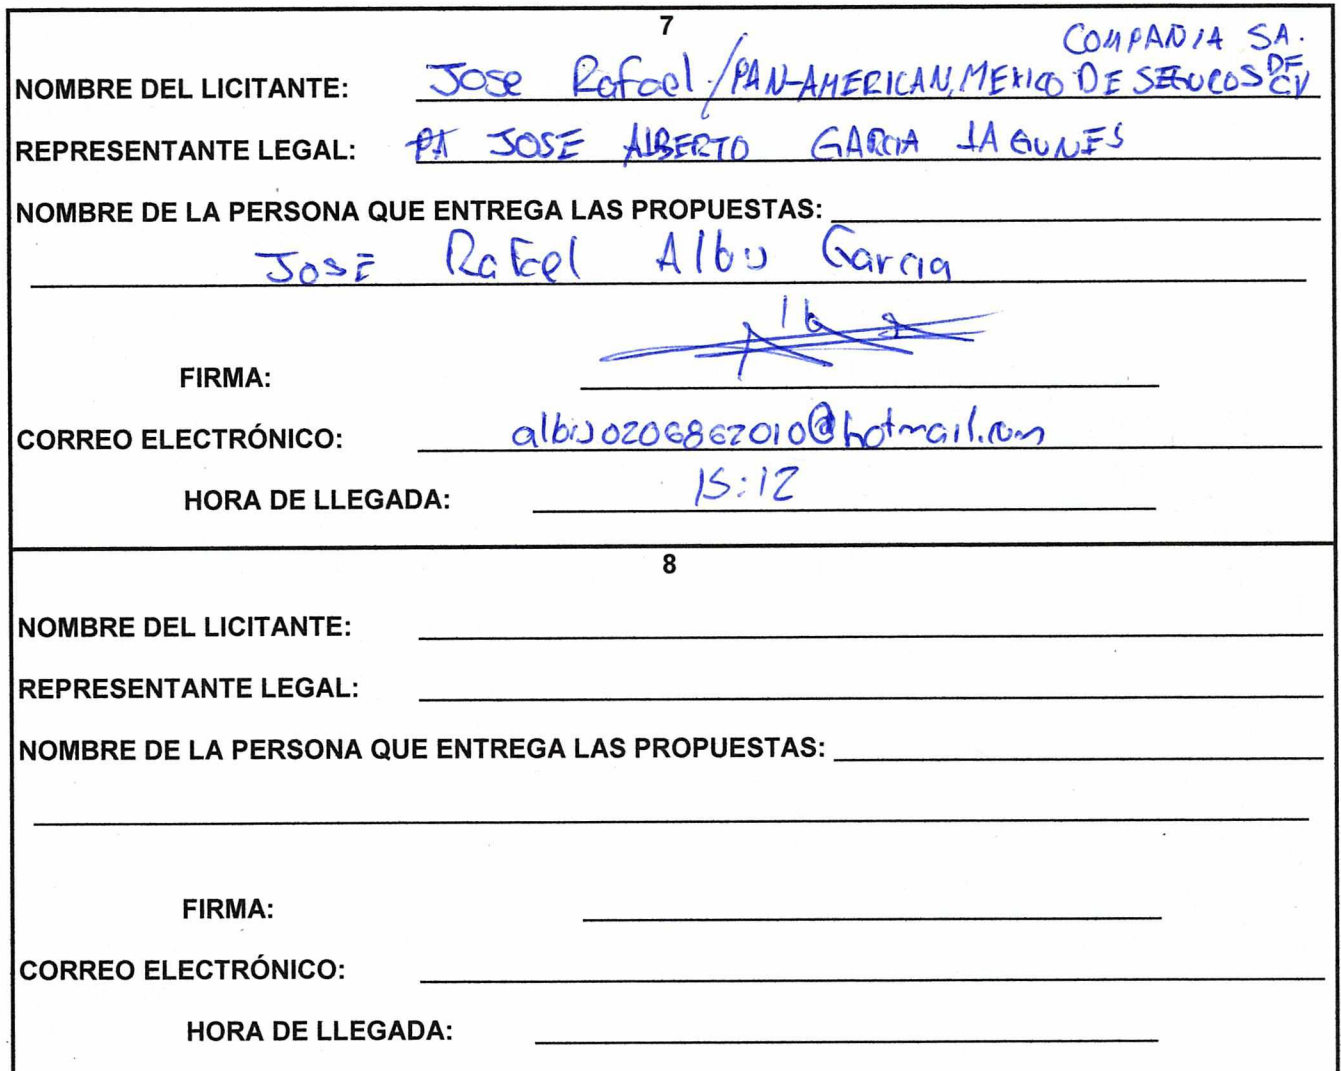 7
COMPAÑIA SA.
NOMBRE DEL LICITANTE: Jose Rafael / PAN-AMERICAN, MEXICO DE SEGUROS DE CV
REPRESENTANTE LEGAL: JOSE ALBERTO GARCIA LAGUNES
NOMBRE DE LA PERSONA QUE ENTREGA LAS PROPUESTAS:
JOSE Rafael Garcia
FIRMA:
CORREO ELECTRÓNICO: @hotmail.com
HORA DE LLEGADA: 15:12
8
NOMBRE DEL LICITANTE:
REPRESENTANTE LEGAL:
NOMBRE DE LA PERSONA QUE ENTREGA LAS PROPUESTAS:
FIRMA:
CORREO ELECTRÓNICO:
HORA DE LLEGADA: